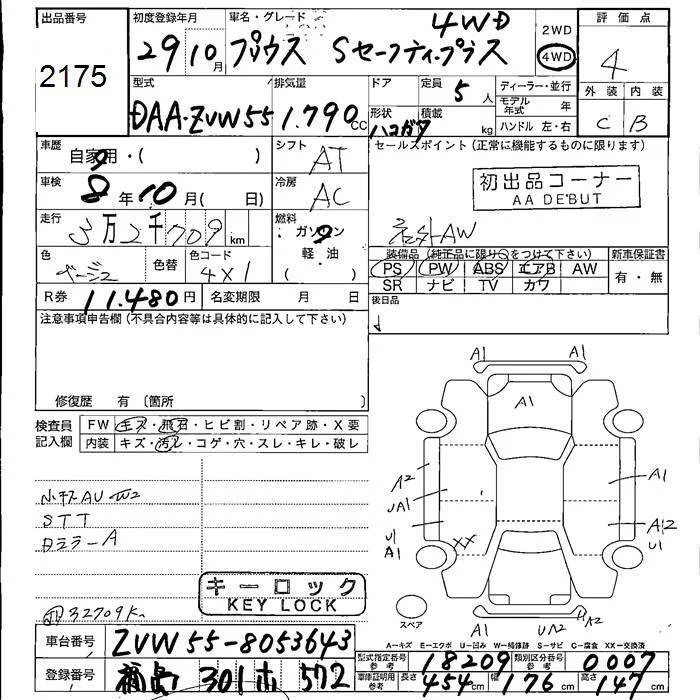 出品番号 2175
初度登録年月 29 10月
車名・グレード プリウス Sセーフティプラス 4WD
2WD
4WD
評価点 4
型式 DAA-ZVW55
排気量 1.790 CC
ドア
定員 5人
形状 ハコガタ
積載 kg
ディーラー・並行
モデル年式 年
ハンドル 左・右
外装 内装
C B
車歴 自家用・( )
シフト AT
セールスポイント(正常に機能するものに限ります)
車検 8年10月( 日)
冷房 AC
初出品コーナー
AA DE'BUT
走行 3万2千709 km
燃料 ガソリン
軽・油
( ・ )
社外AW
色 ベージュ
色替
色コード 4X1
装備品(純正品に限り○をつけて下さい)
新車保証書
PS PW ABS エアB AW
有・無
SR ナビ TV カワ
R券 11.480円
名変期限 月 日
後日品
注意事項申告欄(不具合内容等は具体的に記入して下さい)
修復歴 有 〔箇所 〕
検査員記入欄
FW キズ・飛石・ヒビ割・リペア跡・X要
内装 キズ・汚レ・コゲ・穴・スレ・キレ・破レ
小キズAU
STT
ミラーA
32709K
キーロック
KEY LOCK
A1 A1
A1
A2
UA1
U1
A1
XX
A1
A12
U1
A2
スペア
A-キズ E-エクボ U-凹み W-補修跡 S-サビ C-腐食 XX-交換済
車台番号 ZVW55-8053643
型式指定番号 参考 18209
類別区分番号 参考 0007
登録番号 福島 301 ホ 572
車庫証明用 参考
長さ 454cm
幅 176cm
高さ 147cm